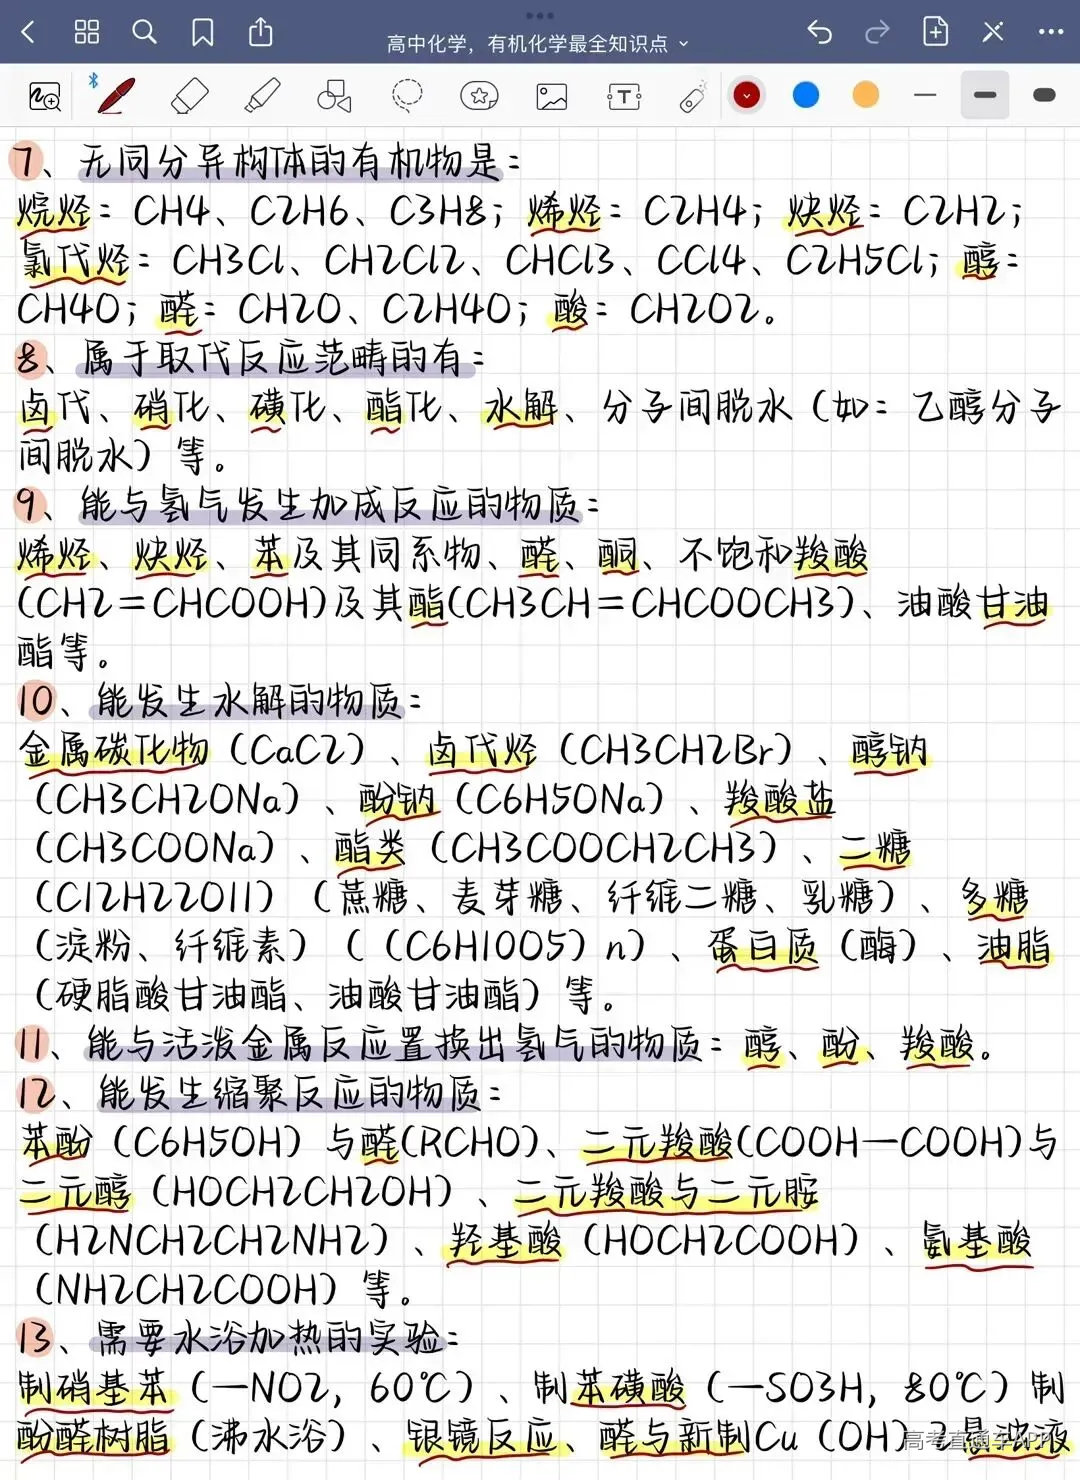 高中化学，有机化学最全知识点
7、无同分异构体的有机物是：
烷烃：CH4、C2H6、C3H8；烯烃：C2H4；炔烃：C2H2；
氯代烃：CH3Cl、CH2Cl2、CHCl3、CCl4、C2H5Cl；醇：
CH4O；醛：CH2O、C2H4O；酸：CH2O2。
8、属于取代反应范畴的有：
卤代、硝化、磺化、酯化、水解、分子间脱水（如：乙醇分子
间脱水）等。
9、能与氢气发生加成反应的物质：
烯烃、炔烃、苯及其同系物、醛、酮、不饱和羧酸
(CH2=CHCOOH)及其酯(CH3CH=CHCOOCH3)、油酸甘油
酯等。
10、能发生水解的物质：
金属碳化物（CaC2）、卤代烃（CH3CH2Br）、醇钠
（CH3CH2ONa）、酚钠（C6H5ONa）、羧酸盐
（CH3COONa）、酯类（CH3COOCH2CH3）、二糖
（C12H22O11）（蔗糖、麦芽糖、纤维二糖、乳糖）、多糖
（淀粉、纤维素）（（C6H10O5）n）、蛋白质（酶）、油脂
（硬脂酸甘油酯、油酸甘油酯）等。
11、能与活泼金属反应置换出氢气的物质：醇、酚、羧酸。
12、能发生缩聚反应的物质：
苯酚（C6H5OH）与醛(RCHO)、二元羧酸(COOH—COOH)与
二元醇（HOCH2CH2OH）、二元羧酸与二元胺
（H2NCH2CH2NH2）、羟基酸（HOCH2COOH）、氨基酸
（NH2CH2COOH）等。
13、需要水浴加热的实验：
制硝基苯（—NO2，60℃）、制苯磺酸（—SO3H，80℃）制
酚醛树脂（沸水浴）、银镜反应、醛与新制Cu（OH）2悬浊液
高考直通车APP